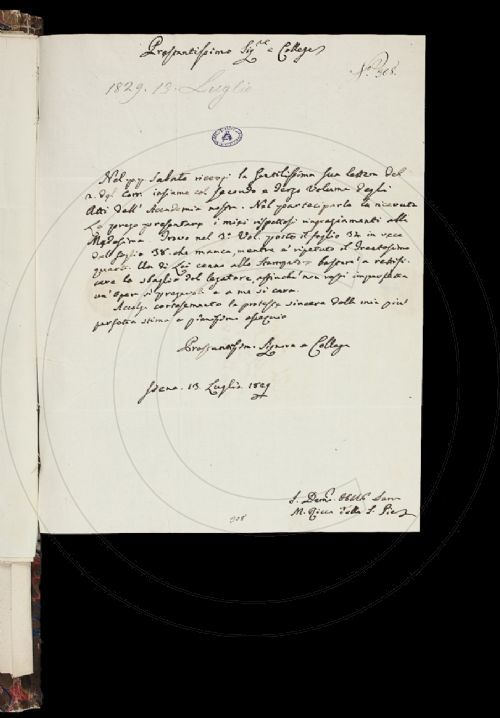 Prestantissimo Sig.re e Collega
No. 308.
1829. 13. Luglio
Nel pp. Sabato ricevei la Gentilissima Sua lettera del
2. del corr. insieme col Secondo e Terzo Volume degli
Atti dell' Accademia nostra. Nel parteciparle la ricevuta
La prego presentare i miei rispettosi ringraziamenti alla
Medesima. Trovo nel 3.° Vol. posto il foglio 34 in vece
del foglio 38. che manca, mentre è ripetuto il trentesimo
quarto. Un di Lei cenno allo Stampatore basterà a rettifi-
care lo sbaglio del legatore, affinchè non resti imperfetta
un' Opera sì pregevole e a me sì cara.
Accolga cortesemente la protesta sincera della mia più
perfetta stima e pienissimo ossequio
Prestantissim. Signore e Collega
Siena. 13. Luglio 1829
S. Dev.
M. Ricca delle S. Pie
308